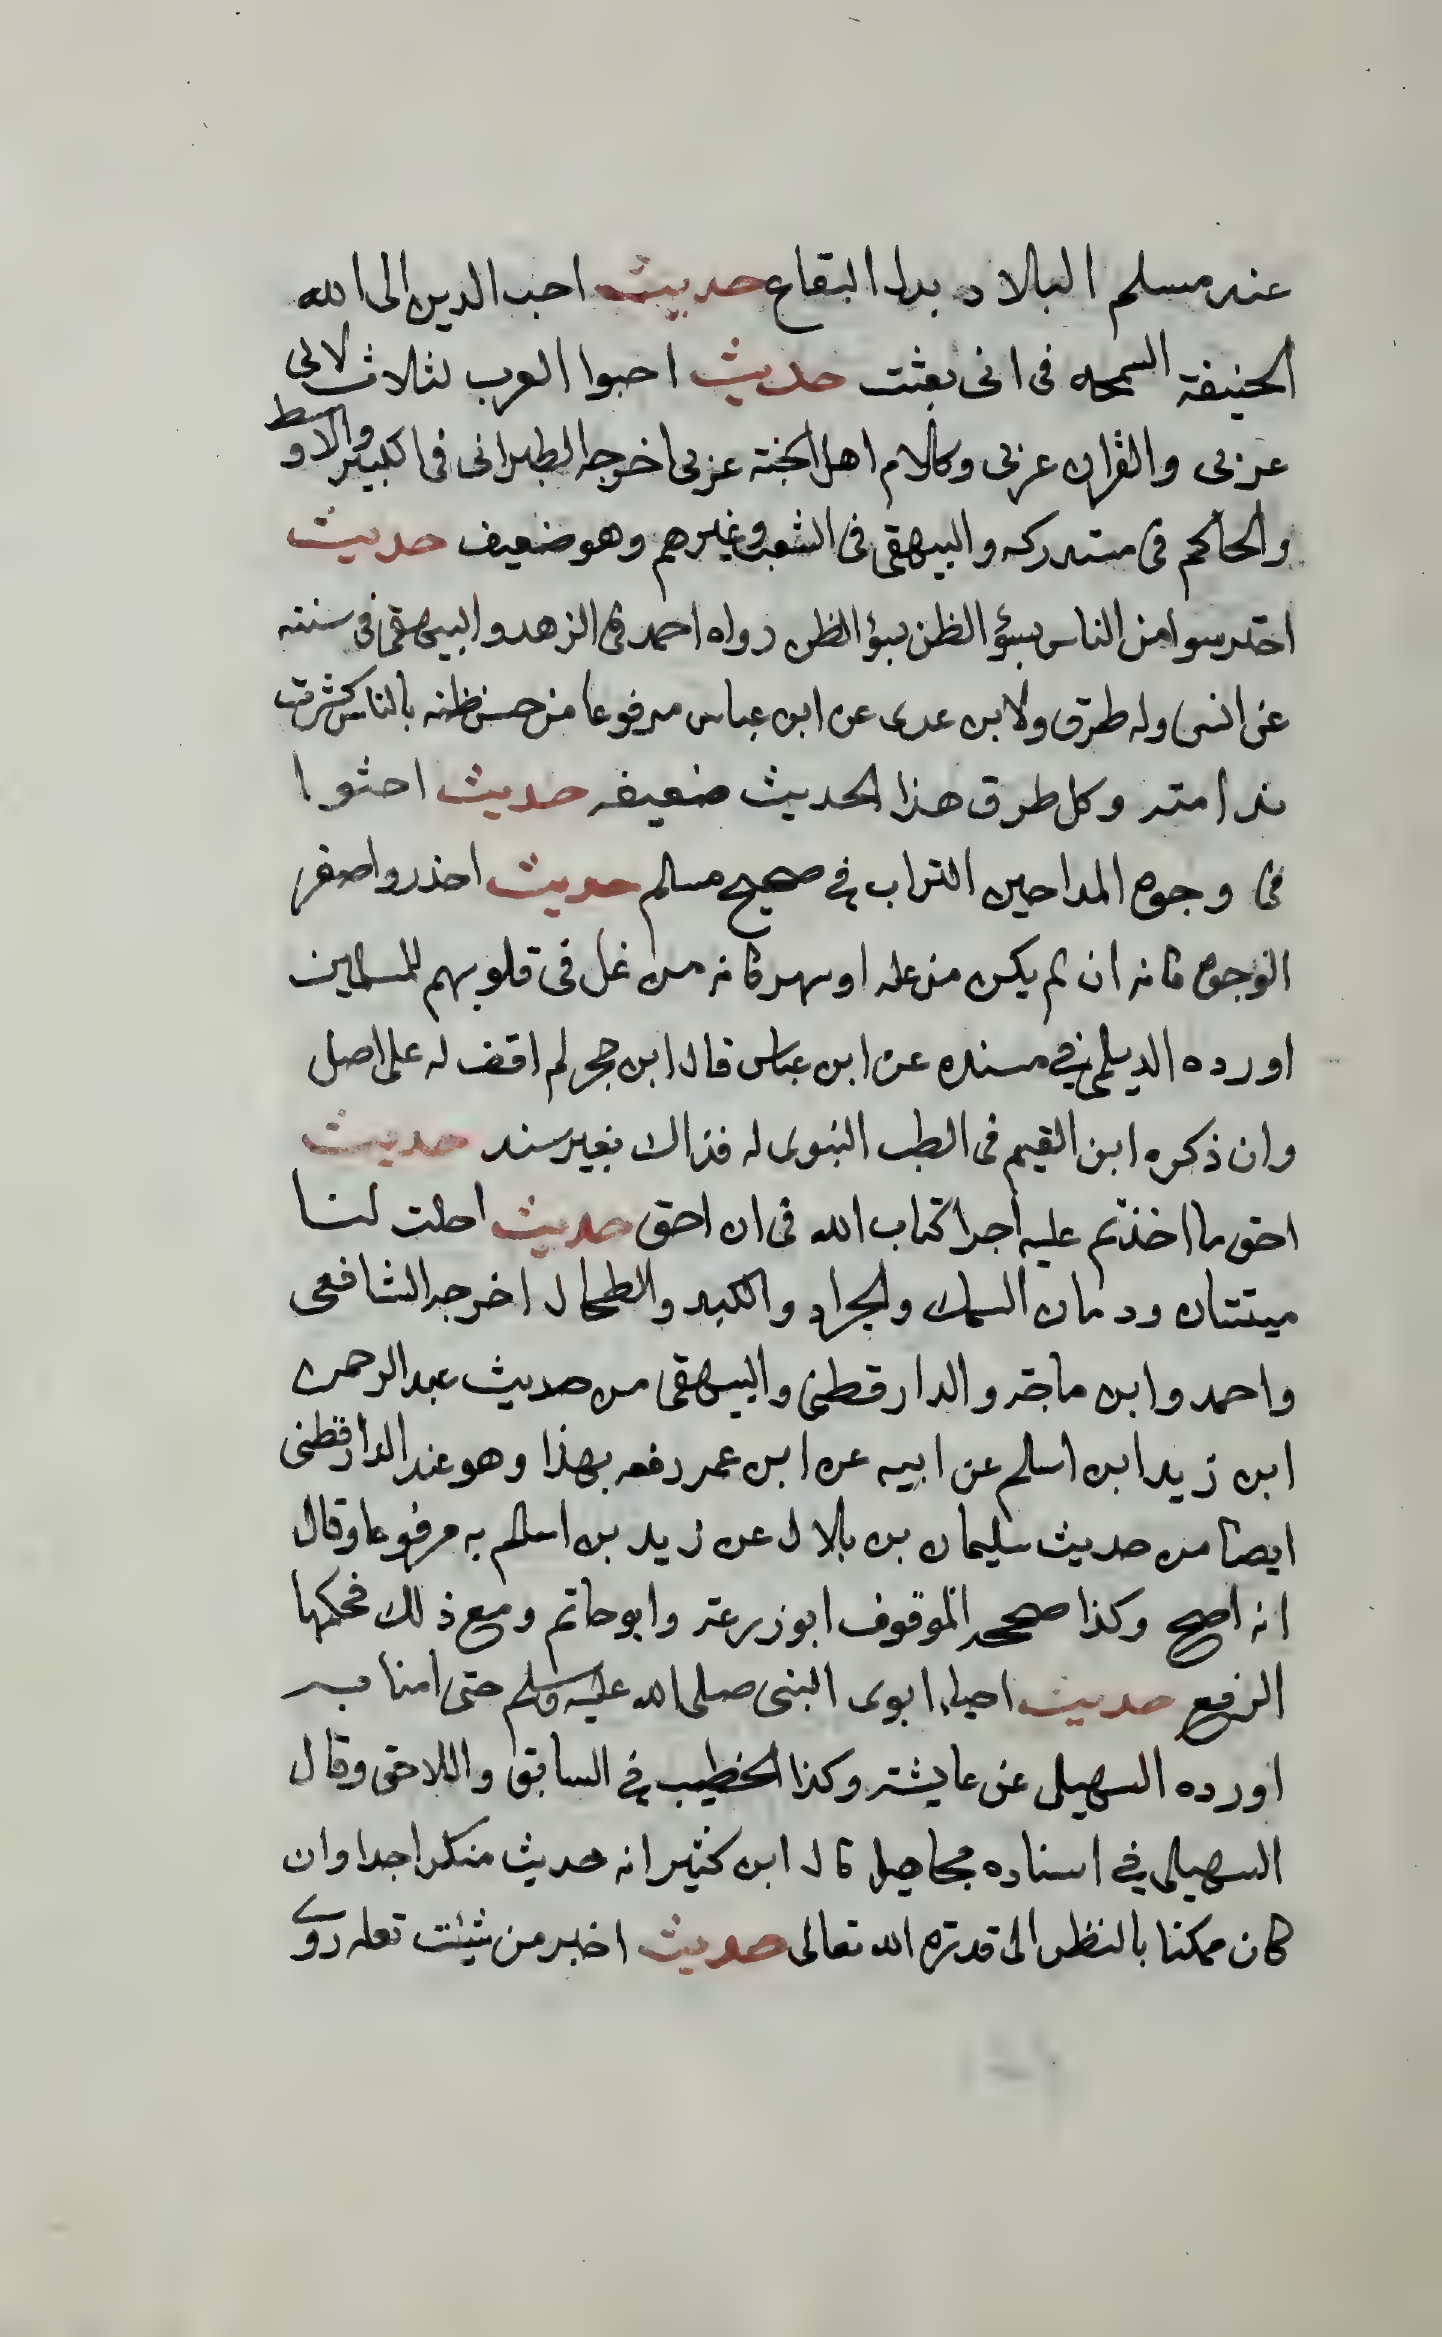 عند مسلم البلاد بدل البقاع حديث احب الدين الى الله
الحنيفة السمحه فى انى بعثت حديث احبوا العرب لثلاث لانى
عربى والقران عربى وكلام اهل الجنة عربى اخرجه الطبرانى فى الكبير والاوسط
والحاكم فى مستدركه والبيهقى فى الشعب وغيرهم وهو ضعيف حديث
احترسوا من الناس بسؤ الظن رواه احمد فى الزهد والبيهقى فى سننه
عن انس وله طرق ولابن عدى عن ابن عباس مرفوعا من حسن ظنه بالناس كثرت
ندامته وكل طرق هذا الحديث ضعيفه حديث احثوا
فى وجوه المداحين التراب في صحيح مسلم حديث احذروا صفر
الوجوه فانه ان لم يكن من عله او سهر فانه من غل فى قلوبهم للمسلمين
اورده الديلمى في مسنده عن ابن عباس قال ابن حجر لم اقف له على اصل
وان ذكره ابن القيم فى الطب النبوى له فذاك بغير سند حديث
احق ما اخذتم عليه اجرا كتاب الله فى ان احق حديث احلت لنا
ميتتان ودمان السمك والجراد والكبد والطحال اخرجه الشافعى
واحمد وابن ماجة والدارقطنى والبيهقى من حديث عبد الرحمن
ابن زيد ابن اسلم عن ابيه عن ابن عمر رفعه بهذا وهو عند الدارقطنى
ايضا من حديث سليمان بن بلال عن زيد بن اسلم به مرفوعا وقال
انه اصح وكذا صحح الموقوف ابوزرعة وابوحاتم ومع ذلك فحكمها
الرفع حديث احياء ابوى النبى صلى الله عليه وسلم حتى امنا به
اورده السهيلى عن عايشة وكذا الخطيب في السابق واللاحق وقال
السهيلى في اسناده مجاهيل قال ابن كثير انه حديث منكر جدا وان
كان ممكنا بالنظر الى قدرة الله تعالى حديث اخبر من شئت تقله روى